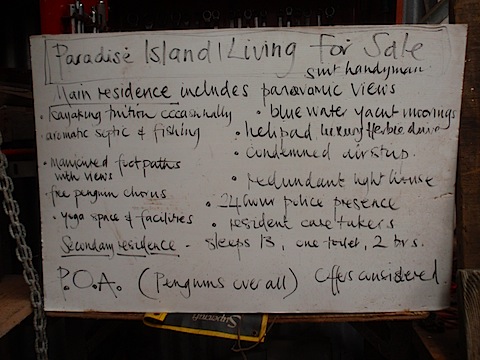 Paradise Island Living For Sale
suit handyman
Main residence includes panoramic views
• Kayaking tuition occasionally
• blue water yacht moorings
aromatic septic & fishing
• helipad luxury
• condemned airstrip.
• Manicured foot paths
with views
• redundant light house
free penguin chorus
• 24 hour police presence
• Yoga space & facilities
• resident care takers
Secondary residence - sleeps 13, one toilet, 2 brs.
P.O.A. (Penguins over all) Offers considered
Supercraft